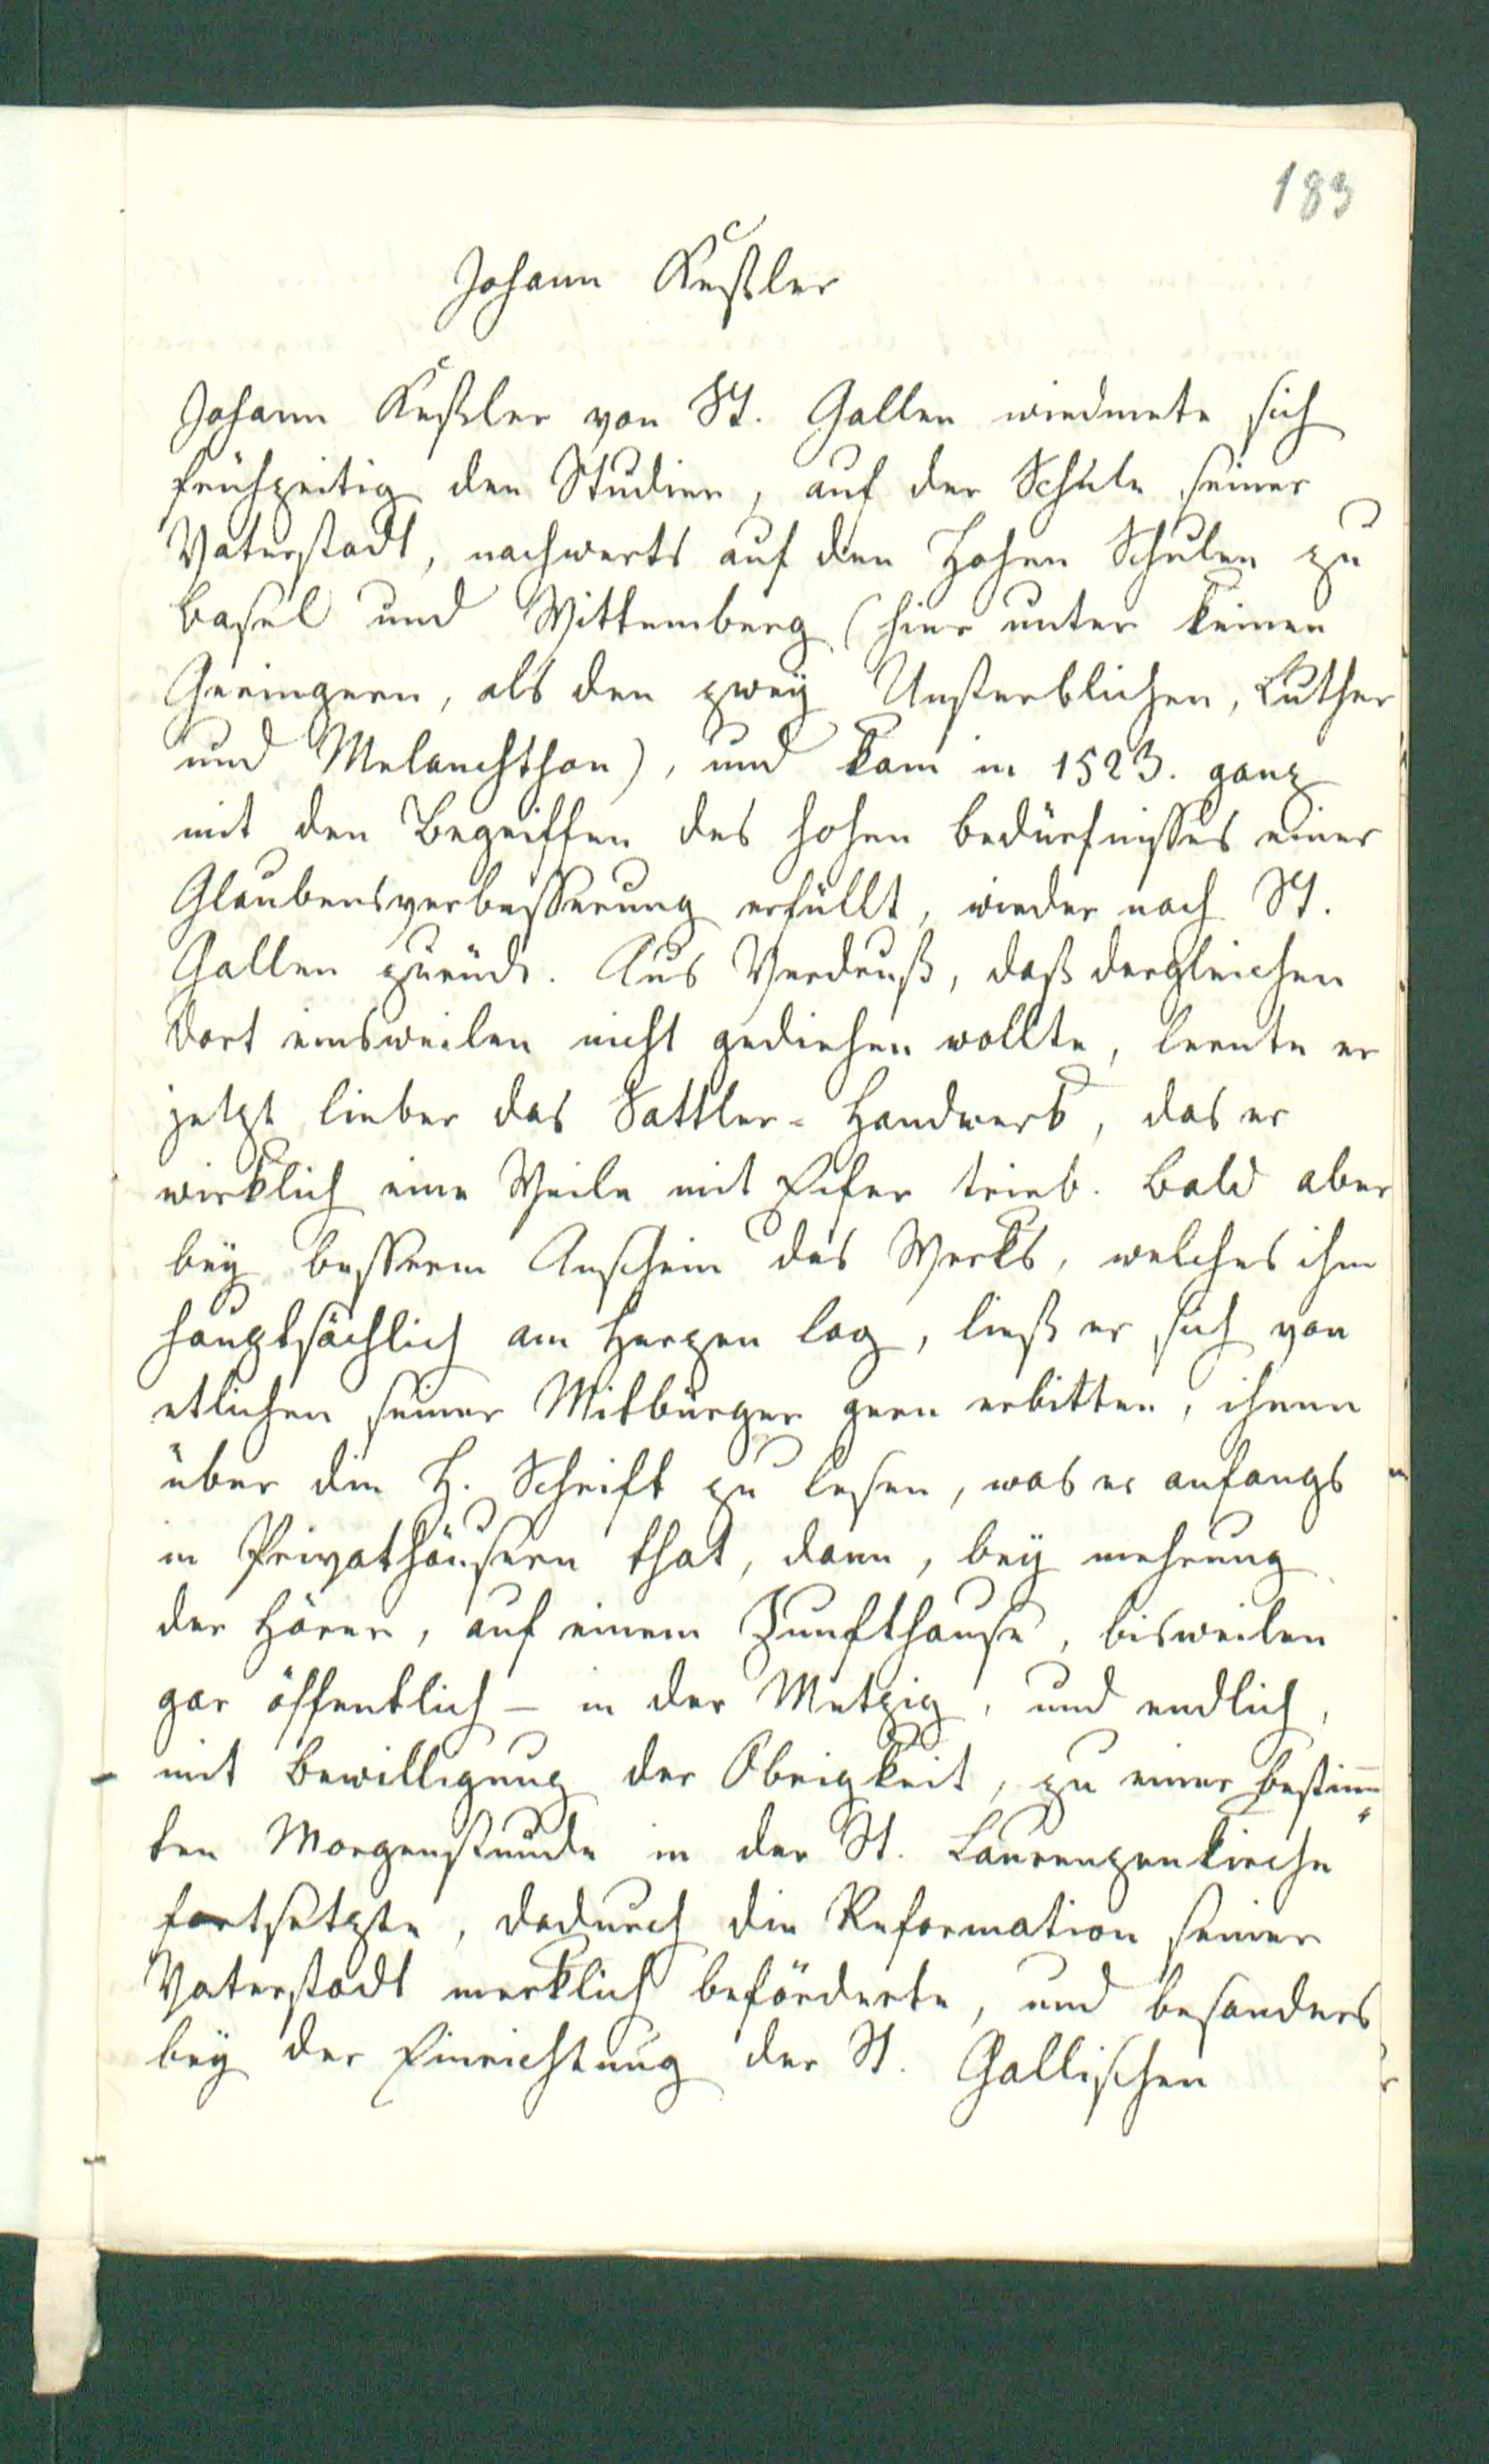 183
Johann Keßler
Johann Keßler von St. Gallen wiedmete sich
frühzeitig den Studien, auf der Schule seiner
Vaterstadt, nachwerts auf den Hohen Schulen zu
Basel und Wittemberg (hier unter keinen
Geringern, als den zweÿ Unsterblichen, Luther
und Melanchthon), und kam in 1523. ganz
mit den Begriffen des hohen Bedürfnisses einer
Glaubensverbesserung erfüllt, wieder nach St.
Gallen zurück. Aus Verdruß, daß dergleichen
dort einsweilen nicht gediehen wollte, lernte er
jetzt lieber das Sattler-Handwerk, das er
wirklich eine Weile mit Eifer trieb. Bald aber
beÿ besserm Anschein des Werks, welches ihm
hauptsächlich am Herzen lag, ließ er sich von
etlichen seiner Mitbürger gern erbitten, ihnen
über die H. Schrift zu lesen, was er anfangs
in Privathäusern that, dann, beÿ mehrung
der Hörer, auf einem Zunfthause, bisweilen
gar öffentlich – in der Metzig, und endlich,
mit Bewilligung der Obrigkeit, zu einer bestim̅
ten Morgenstunde in der St. Laurenzenkirche
fortsetzte, dadurch die Reformation seiner
Vaterstadt merklich beförderte, und besonders
beÿ der Einrichtung der St. Gallischen